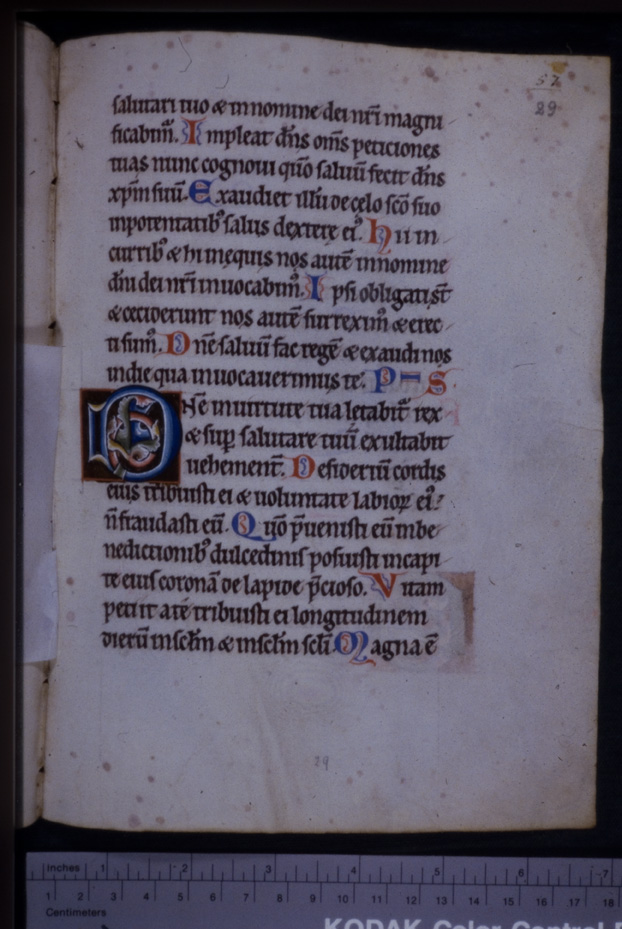 57
29
salutari tuo & innomine dei nr̄i magni
ficabim᷒. Impleat dn̄s om̄s peticiones
tuas nunc cognoui qūo saluū fecit dn̄s
xp̄m suū. Exaudiet illū de celo sc̄o suo
inpotentatib᷒ salus dextere ei᷒. Hii in
currib᷒ & hi inequis nos autē innomine
dn̄i dei nr̄i inuocabim᷒. Ipsi obligati st̄
& ceciderunt nos autē surrexim᷒ & erec
ti sum᷒. Dn̄e saluū fac regē & exaudi nos
indie qua inuocauerimus te. P S
Dn̄e inuirtute tua letabit᷑ rex
& sup̄ salutare tuū exultabit
uehement᷑. Desideriū cordis
eius tribuisti ei & uoluntate labioꝝ ei᷒
n̄ fraudasti eū. Qūo p̄uenisti eū in be
nedictionib᷒ dulcedinis posuisti incapi
te eius coronā de lapide p̄cioso. Vitam
petiit a te tribuisti ei longitudinem
dierū insc̄lm & insc̄lm sc̄li. Magna ē
29
Inches 1 2 3 4 5 6 7
1 2 3 4 5 6 7 8 9 10 11 12 13 14 15 16 17 18
Centimeters
KODAK Color Control